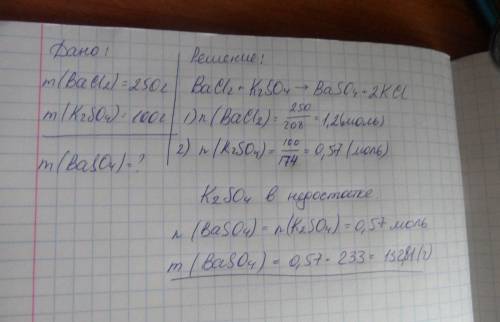 Дано:
m(BaCl2)=250г
m(K2SO4)=100г
m(BaSO4)=?
Решение:
BaCl2+K2SO4→BaSO4+2KCl
1) n(BaCl2)=250/208=1,2(моль)
2) n(K2SO4)=100/174=0,57(моль)
K2SO4 в недостатке
n(BaSO4)=n(K2SO4)=0,57 моль
m(BaSO4)=0,57·233=132,81(г)